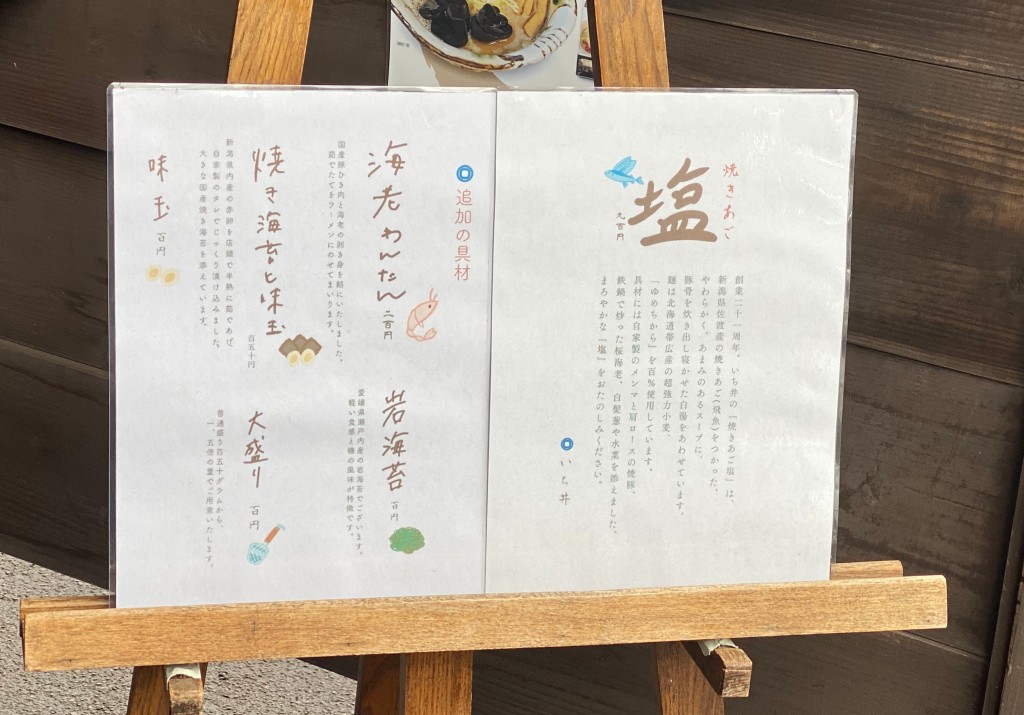 焼きあご
塩
九百円
創業二十一周年、いち井の「焼きあご塩」は、
新潟県佐渡産の焼きあご(飛魚)をつかった、
やわらかく、あまみのあるスープに、
豚骨を炊き出し寝かせた白湯をあわせています。
麺は北海道帯広産の超強力小麦、
「ゆめちから」を百%使用しています。
具材には自家製のメンマと肩ロースの焼豚、
鉄鍋で炒った桜海老、白髪葱や水菜を添えました。
まろやかな「塩」をおたのしみください。
いち井
追加の具材
海老わんたん
二百円
国産豚ひき肉と海老の剥き身を餡にいたしました。
茹でたてをラーメンにのせてまいります。
岩海苔
百円
愛媛県瀬戸内産の岩海苔でございます。
軽い食感と磯の風味が特徴です。
焼き海苔と味玉
百五十円
新潟県内産の赤卵を店頭で半熟に茹であげ、
自家製のタレでじっくり漬け込みました。
大きな国産焼き海苔を添えています。
大盛り
百円
普通盛り百五十グラムから、
一、五倍の量でご用意いたします。
味玉
百円